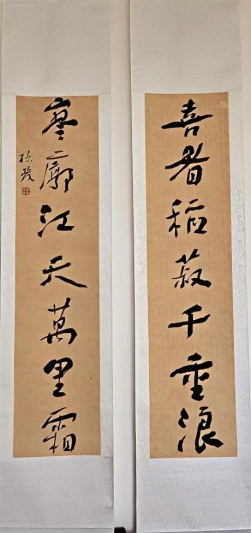 喜看稻菽千重浪
寥廓江天萬里霜